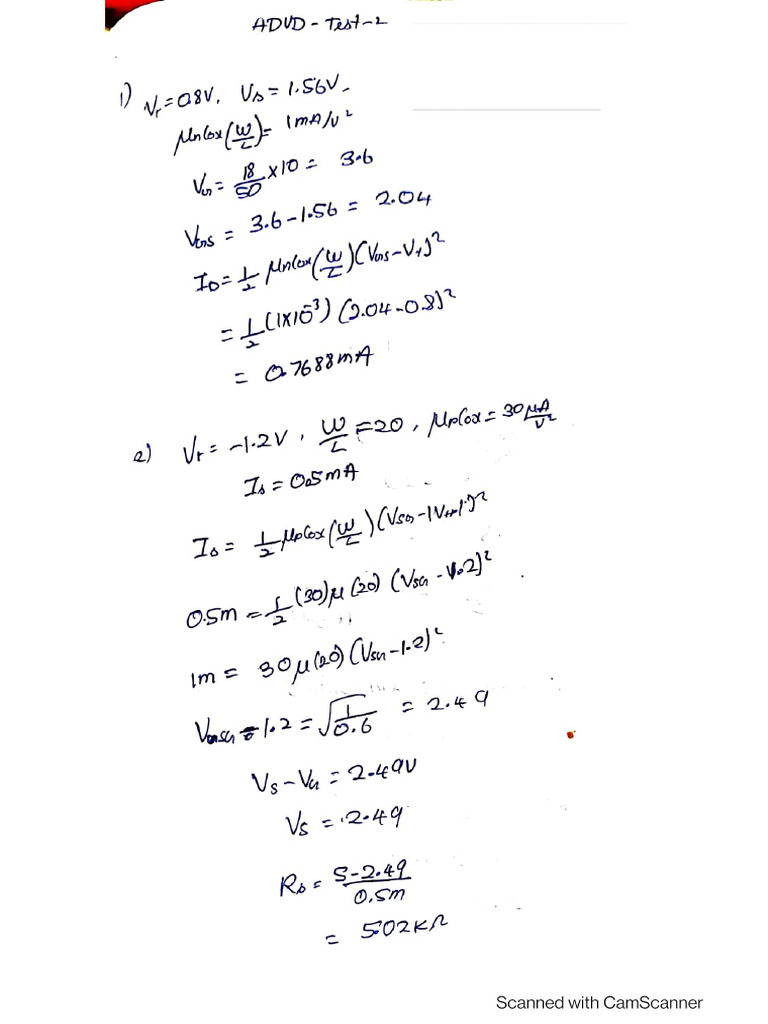 ADVD - Test-2
1) Vr = 0.8V, Vs = 1.56V.
μnCox (W/L) = 1mA/V²
VG = 18/50 × 10 = 3.6
VGS = 3.6 - 1.56 = 2.04
ID = 1/2 μnCox (W/L) (VGS - Vt)²
= 1/2 (1×10⁻³) (2.04 - 0.8)²
= 0.7688mA
2) Vr = -1.2V, W/L = 20, μpCox = 30 μA/V²
Is = 0.5mA
Is = 1/2 μpCox (W/L) (VSG - |Vtp|)²
0.5m = 1/2 (30)μ (20) (VSG - 1.2)²
1m = 30μ(20) (VSG - 1.2)²
VSG - 1.2 = √(1/0.6) = 2.49
Vs - VG = 2.49V
Vs = 2.49
Rs = 5-2.49/0.5m
= 5.02KΩ
Scanned with CamScanner